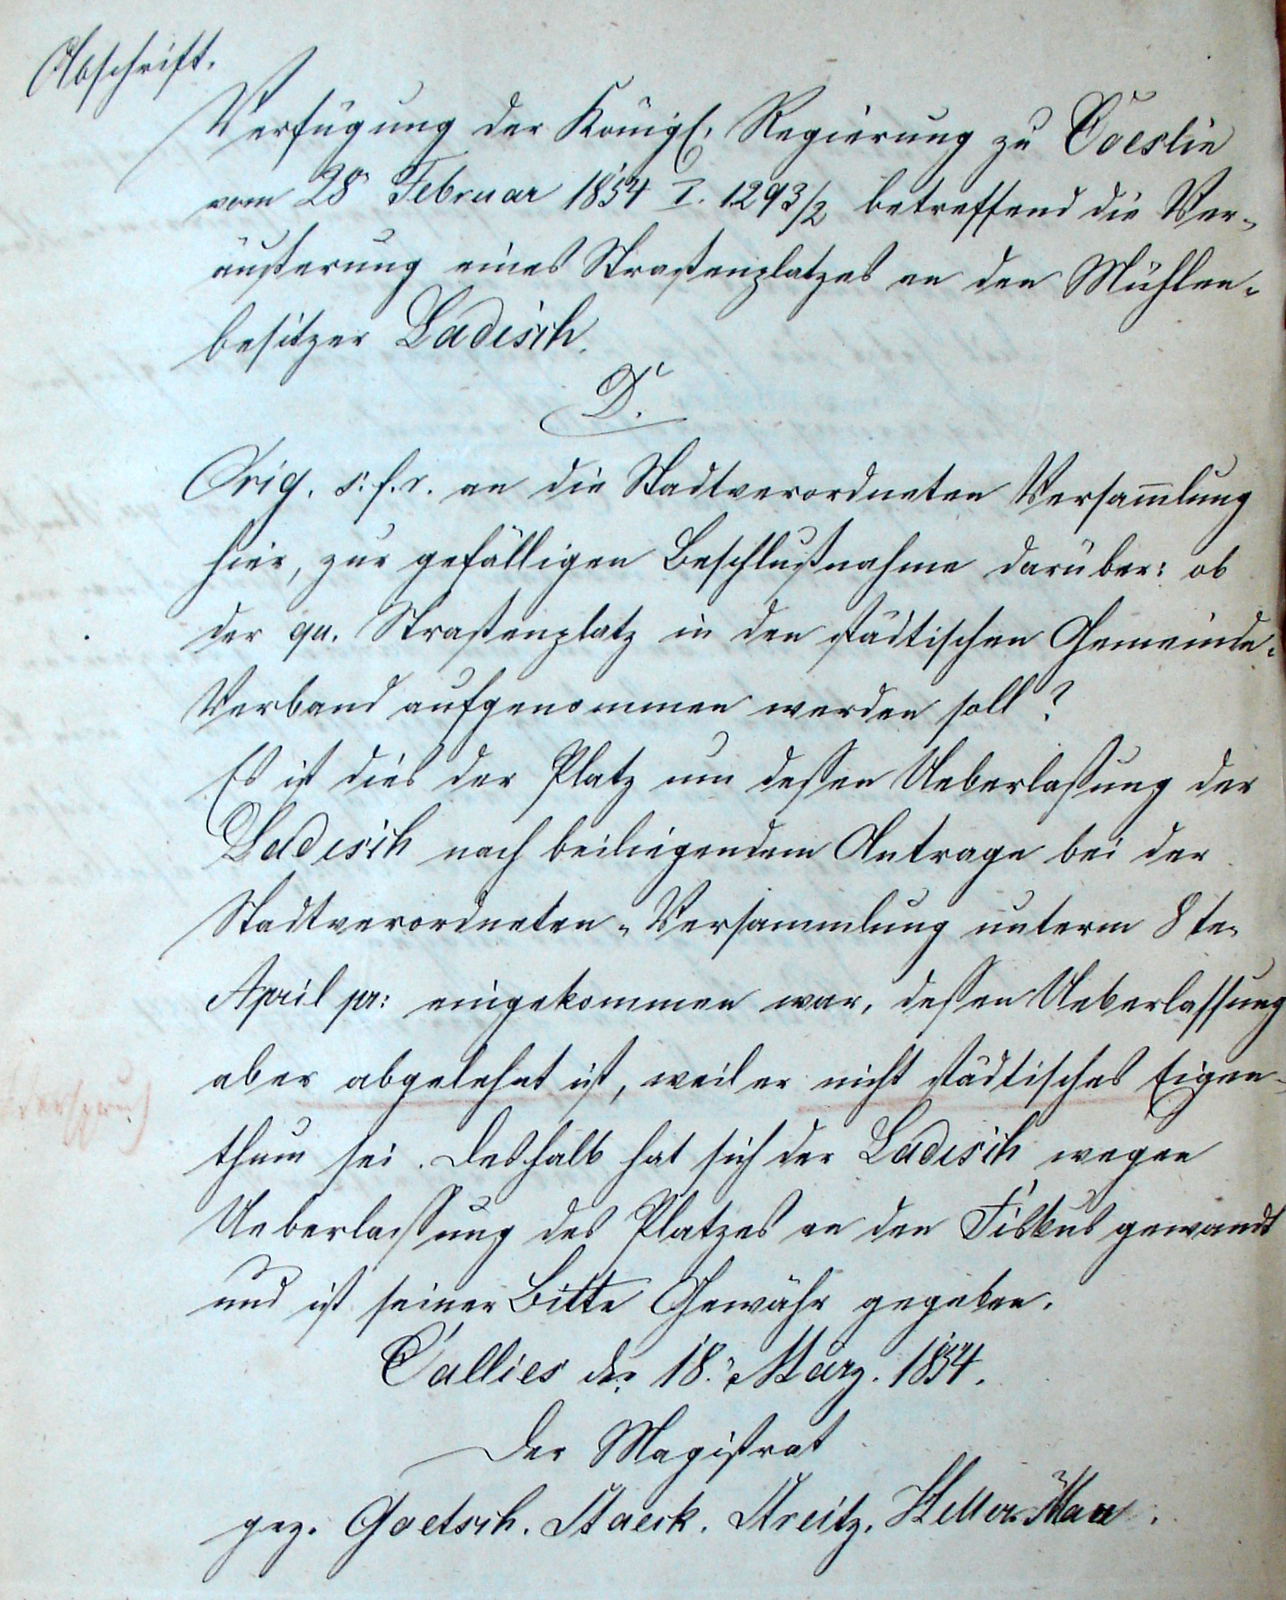 Abschrift.
Verfügung der Königl. Regierung zu Coeslin
vom 28 Februar 1854 I. 1293/2 betreffend die Ver-
äußerung eines Straßenplatzes an den Mühlen-
besitzer Ladisch.
D.
Orig. s. f. r. an die Stadtverordneten Versam̄lung
hier, zur gefälligen Beschlußnahme darüber: ob
der qu. Straßenplatz in den städtischen Gemeinde-
Verband aufgenommen werden soll?
Es ist dies der Platz um deßen Ueberlaßung der
Ladisch nach beiliegendem Antrage bei der
Stadtverordneten-Versammlung unterm 8te.
April pr: eingekommen war, deßen Ueberlassung
aber abgelehnt ist, weil er nicht städtisches Eigen-
thum sei. Deshalb hat sich der Ladisch wegen
Ueberlassung des Platzes an den Fiskus gewandt
und ist seiner Bitte Gewähr gegeben.
Callies den 18. März. 1854.
Der Magistrat
gez. Goetsch. Staeck. Streitz.